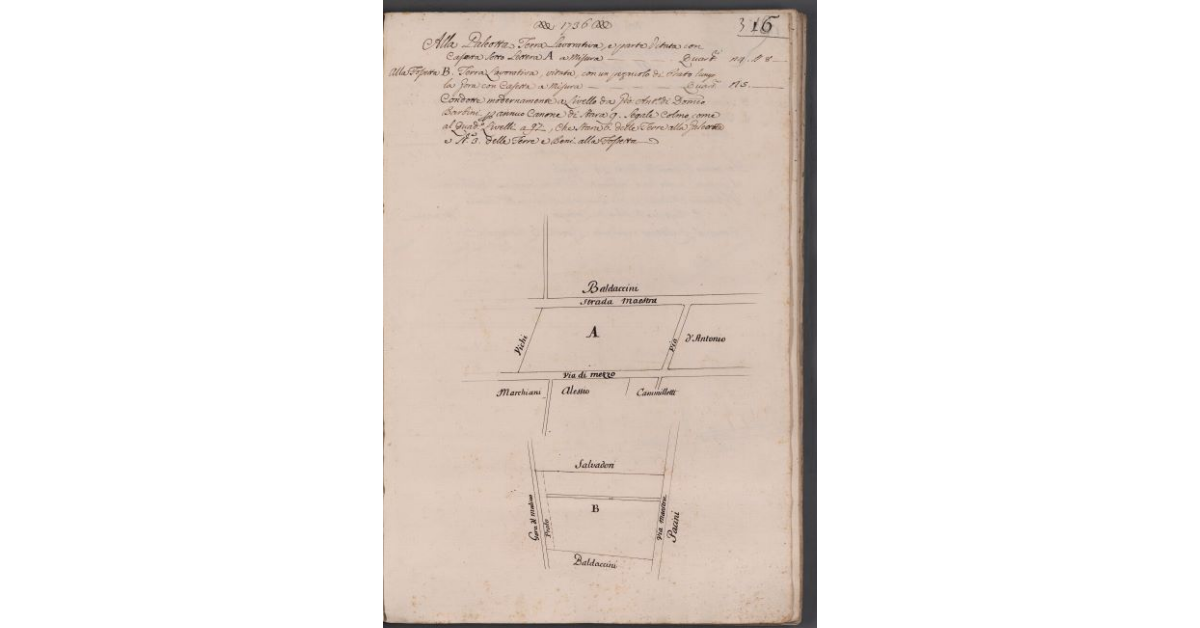 1736
316
Alla Paleotta Terra Lavorativa, e parte Vitata con
Casetta sotto Littera A a Misura — Quart. n.9. P. 8
Alla Fossetta B. Terra Lavorativa, vitata, con un pezzuolo di Prato lungo
la Gora con Casetta a Misura — Quart. n.5.
Condotte modernamente a Livello da Gio. Ant. di Domco
Barbini annuo Canone di Stara 9. Segale Colmo, come
al Quad. Livelli a 92, che Stara 6. delle Terre alla
e N. 3. delle Terre e Beni alla Fossetta
Baldaccini
Strada Maestra
Pichi
A
Via
d'Antonio
Via di mezzo
Marchiani
Alessio
Cammillotti
Salvadori
Gora del Molino
Prato
B
Via Maestra
Pacini
Baldaccini